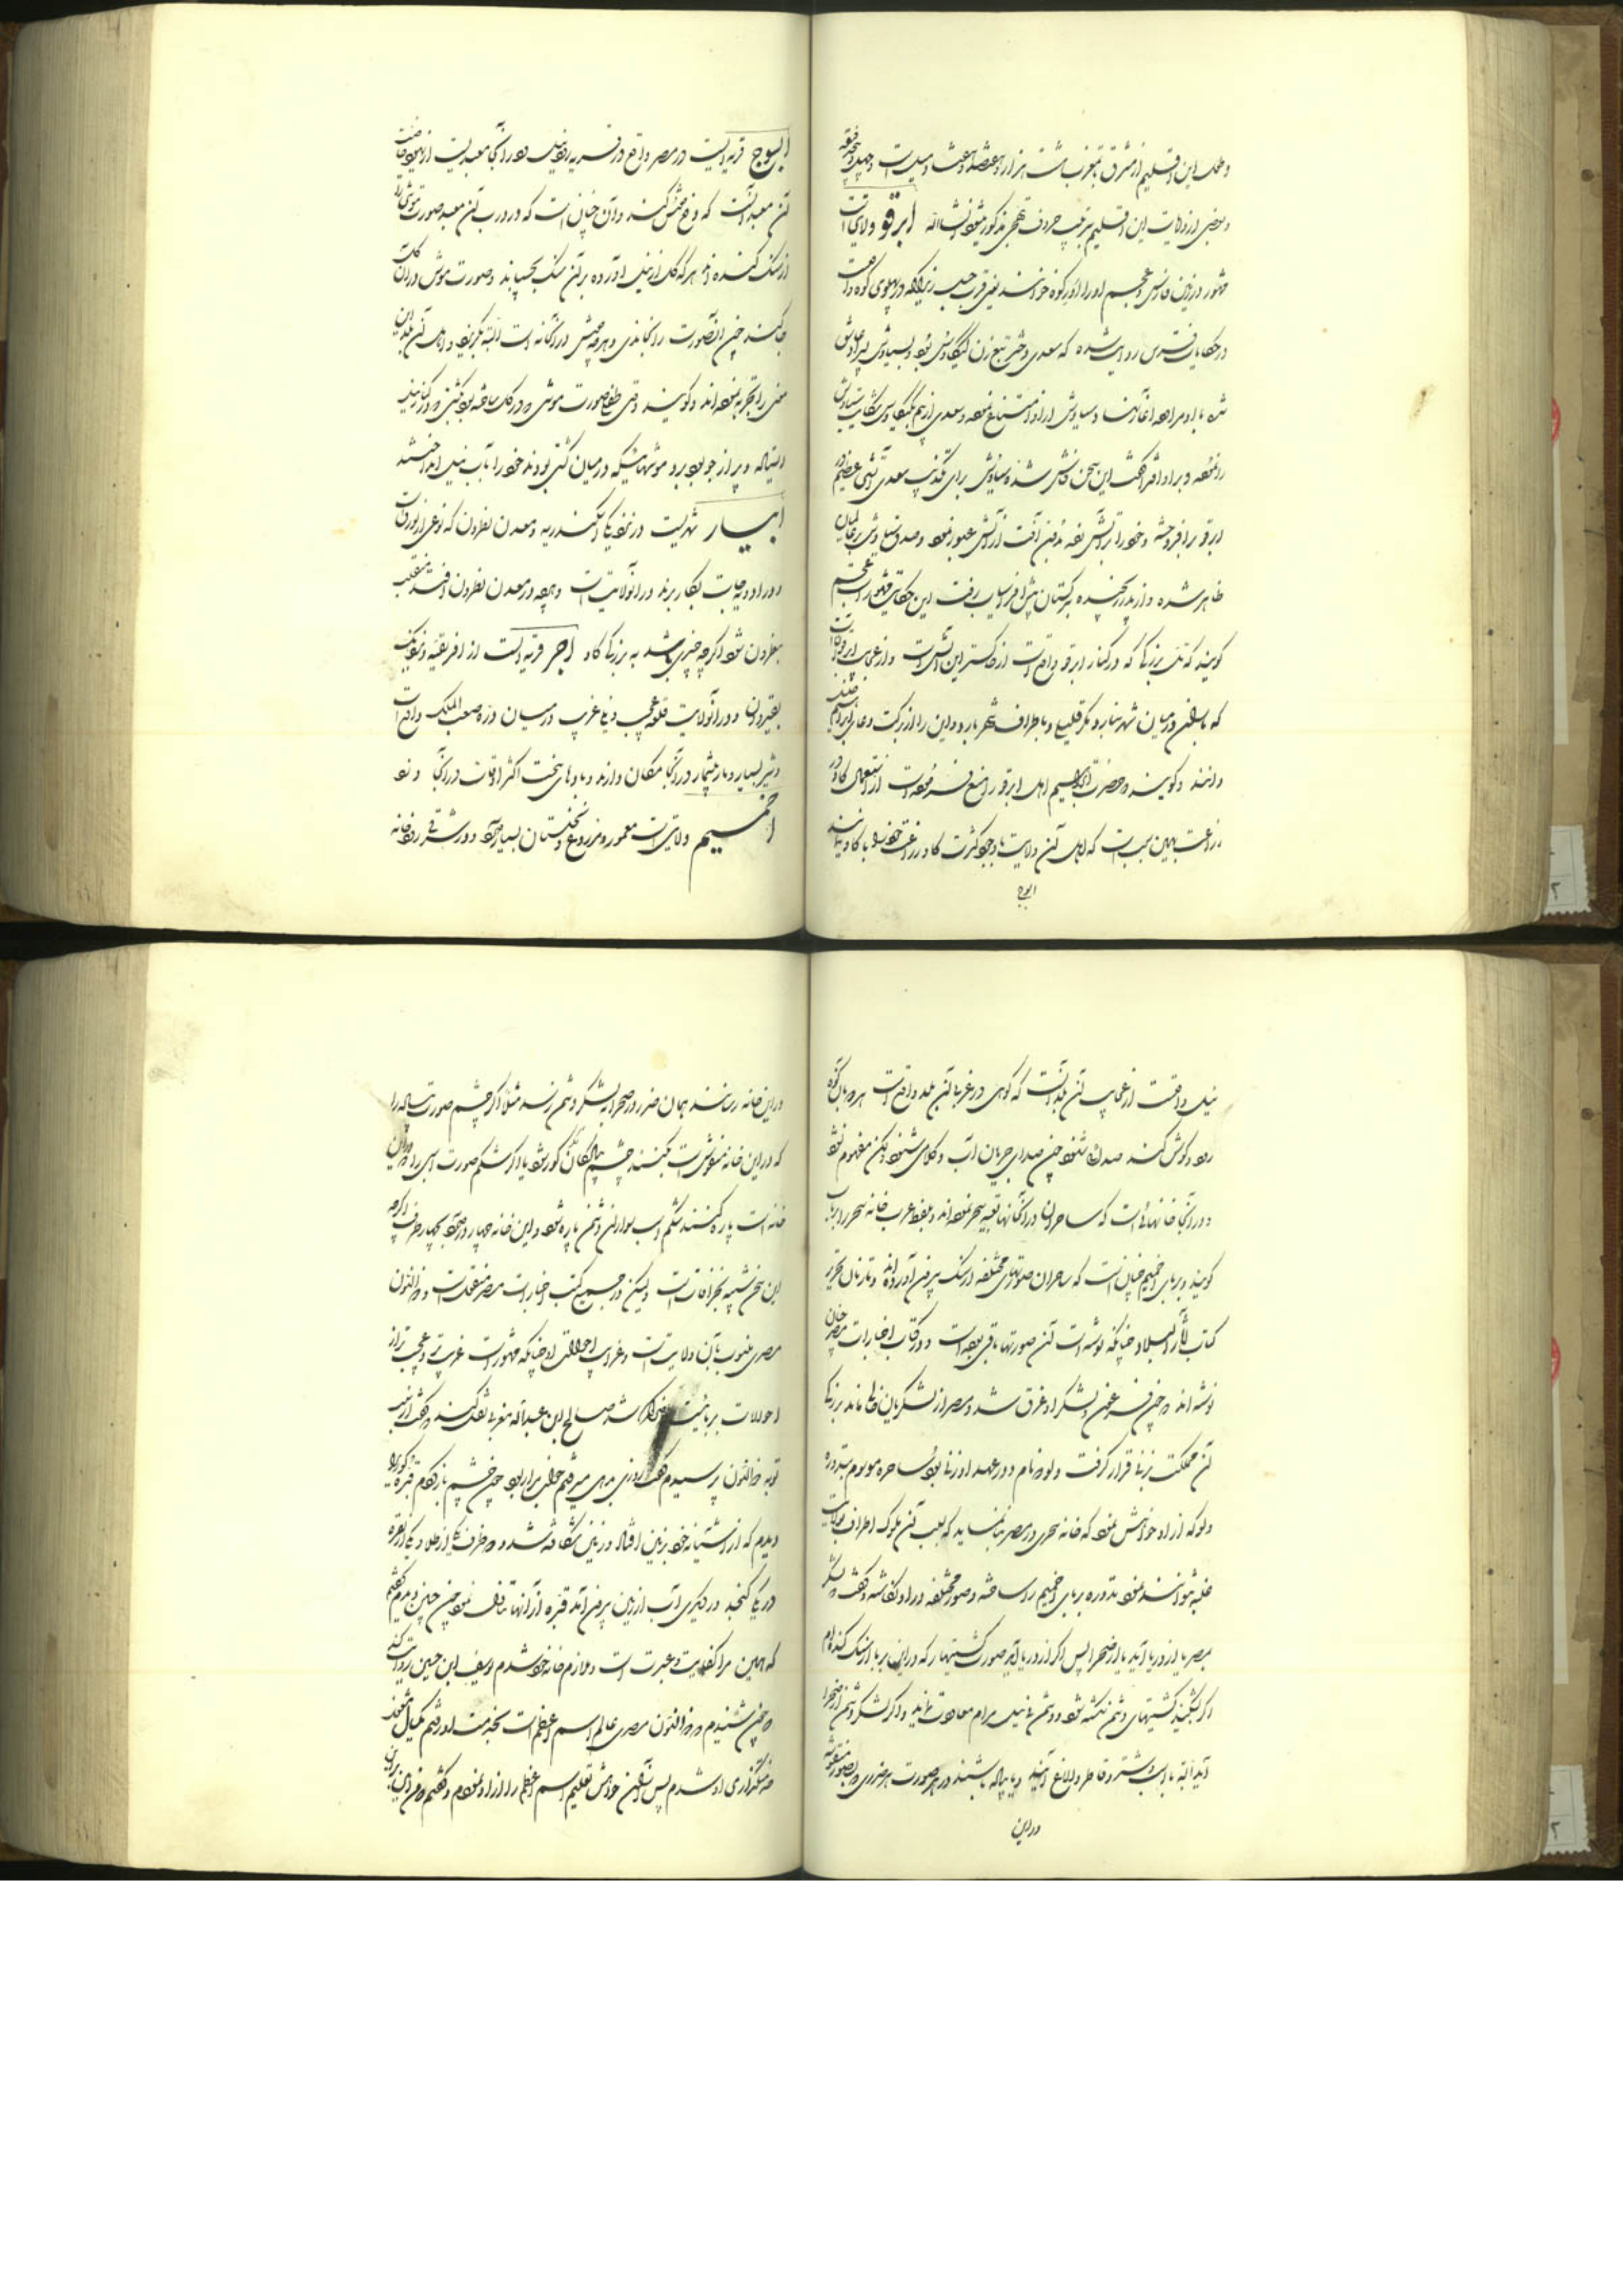 و طول این اقلیم از مشرق تا بمغرب هشت هزار و هفتصد و هشتاد میلست و چهل و پنج دقیقه
و بعضی از ولایت این اقلیم بترتیب حروف تهجی مذکور میشود انشاالله ابرقو ولایتی است
مشهور در زمین فارس و عجم او را اورکوه خوانند یعنی قرب جبل زیراکه در پهلوی کوه واقعست
در حکایات فرس روایت شده که سعدی دختر تبع زن کیکاوس بود و بسیاوش پسر او عاشق
شده با او مراوده آغاز نهاد و سیاوش از او امتناع نموده و سعدی از بیم کیکاوس شکایت سیاوش
را نموده و بر او افترا گفت این سخن فاش شد و سیاوش برای تکذیب سعدی آتشی عظیم در
ابرقو برافروخته و خود را بر آتش زده بدون آفت از آتش عبور نمود و صدق سیاوش بر عالمیان
ظاهر شده و از پدر رنجیده بترکستان پیش افراسیاب رفت این حکایت مشهور است عجم
گویند که تل بزرگی که در کنار ابرقو واقع است از خاکستر این آتش است و از عجایب ابرقو آنست
که باران در میان شهر نبارد مگر قلیلی و باطراف شهر بارد و این را از برکت دعای ابراهیم
دانند و گویند که حضرت ابراهیم اهل ابرقو را منع فرموده است از استعمال گاو در
زراعت بهمین سبب است که اهل آن ولایت با وجود کثرت گاو زراعت خود را با گاو ننمایند
ابوج
ابسوج قریه ایست در مصر واقع در قسریه رود نیل و در آنجا معبدیست از عجایب خاصیت
آن معبد آنست که دفع موش کند و آن چنان است که در درب آن معبد صورت موشی را
از سنگ کنده اند هرکه گل از نیل آورده بر آن سنگ بچسپاند و صورت موش در آن گل
جا کند چون آنصورت را بخانه برد هر چه موش در آنخانه است البته بگریزد و اهل آن بلد این
معنی را تجربه نموده اند و گویند وقتی طفلی صورت موش در گل ساخته بود و کشتی در کنار نیل
ایستاده و پر از جو بود موشهائیکه در میان کشتی بودند خود را بآب نیل انداختند
ابیار شهریست در نزدیکی اسکندریه و معدن نطرون که نوعی از بورق است
و در ادویه جات بکار برند در آنولایتست و هرچه در معدن نطرون افتد منقلب
بنطرون شود اگر چه چیزی باشد به بزرگی گاو اجر قریه ایست از افریقیه و نزدیک
بقیروان و در آنولایت قلعه عجیب و بنای غریب در میان دره صعب المسلک واقع است
و شیر بسیار و مار بیشمار در آنجا مکان دارند و بادهای سخت اکثر اوقات در آنجا وزد
اخمیم ولایتی است معمور و مزروع و نخلستان بسیار دارد و در شرقی رودخانه
نیل واقعست از عجایب آن بلد آنست که کوهی در غربی آن بلد واقع است هرکه ببالای کوه
رود و گوش کند صدائی شنود چون صدای جریان آب و کلامی شنود لیکن مفهوم نشود
و در آنجا خانهائی است که ساحران در آنخانها تعبیه سحر نموده اند و بلفظ عرب خانه سحر را بربا
گویند و بربای اخمیم چنان است که ساحران صورتهای مختلفه از سنگ بیرون آورده اند و تا زمان تحریر
کتاب آثار البلاد چنانکه نوشته است آن صورتها باقی بوده است و در کتاب اخبارات مصر چنان
نوشته اند که چون فرعون و لشکر او غرق شد و مصر از لشکریان خالی ماند بزرگی
آن مملکت بزنی قرار گرفت دلوکه نام و در عهد او زنی بود ساحره موسوم بتدوره
دلوکه از او خواهش نمود که خانه سحری در مصر بنا نماید که بسبب آن ملوک اطراف بولایت
غلبه نتوانند نمود تدوره بربای اخمیم را ساخته و صور مختلفه در او نگاشته و گفت که لشکر
بمصر یا از دریا آید یا از صحرا پس اگر از دریا آید صورت کشتیها را که در این بربا از سنگ کنده ام
اگر بشکنید کشتیهای دشمن شکسته شود و دشمن بی نیل مرام معاودت نماید و اگر لشکر دشمن از صحرا
آید البته با اسب و شتر و قاطر و الاغ آیند و یا پیاده باشند در هر صورت هر ضرری که بصور منقوشه
در این
در این خانه رسانند همان ضرر در صحرا بلشکر دشمن رسد مثلا اگر چشم صورت پیاده را
که در این خانه منقوش است بکنند چشم پیادگان کور شود یا اگر شکم صورت اسبی را که در این
خانه است پاره کنند شکم اسب سواران دشمن پاره شود و این خانه چهار در دارد بچهار طرف اگرچه
این سخن شبیه بخرافات است ولیکن در جمیع کتب اخبارات مصر منقولست و ذالنون
مصری منسوب بآن ولایت است و غرایب احوالات او چنانکه مشهور است غریب تر و عجیب تر از
احوالات بربا نیست صالح ابن عبدالله مغربی نقل کند که گفت از سبب
توبه ذالنون پرسیدم گفت روزی براهی میرفتم خوابی برابر بود چون چشم باز کردم قنبره کوری را
دیدم که از آشیانه خود بزمین افتاد و زمین شکافته شد و دو ظرف یکی از طلا و یکی از نقره
در یکی کنجد و در دیگری آب از زمین بیرون آمد قنبره از آنها تناول نمود چون چنین دیدم گفتم
که همین مرا کفایت و عبرت است و ملازم خانه خود شدم یوسف ابن حسین روایت کند
که چون شنیدم که ذالنون مصری عالم اسم اعظم است بخدمت او رفتم یکسال مشغول
خدمتگزاری او شدم پس از آن خواهش تعلیم اسم اعظم را از او نمودم و گفتم که من در این